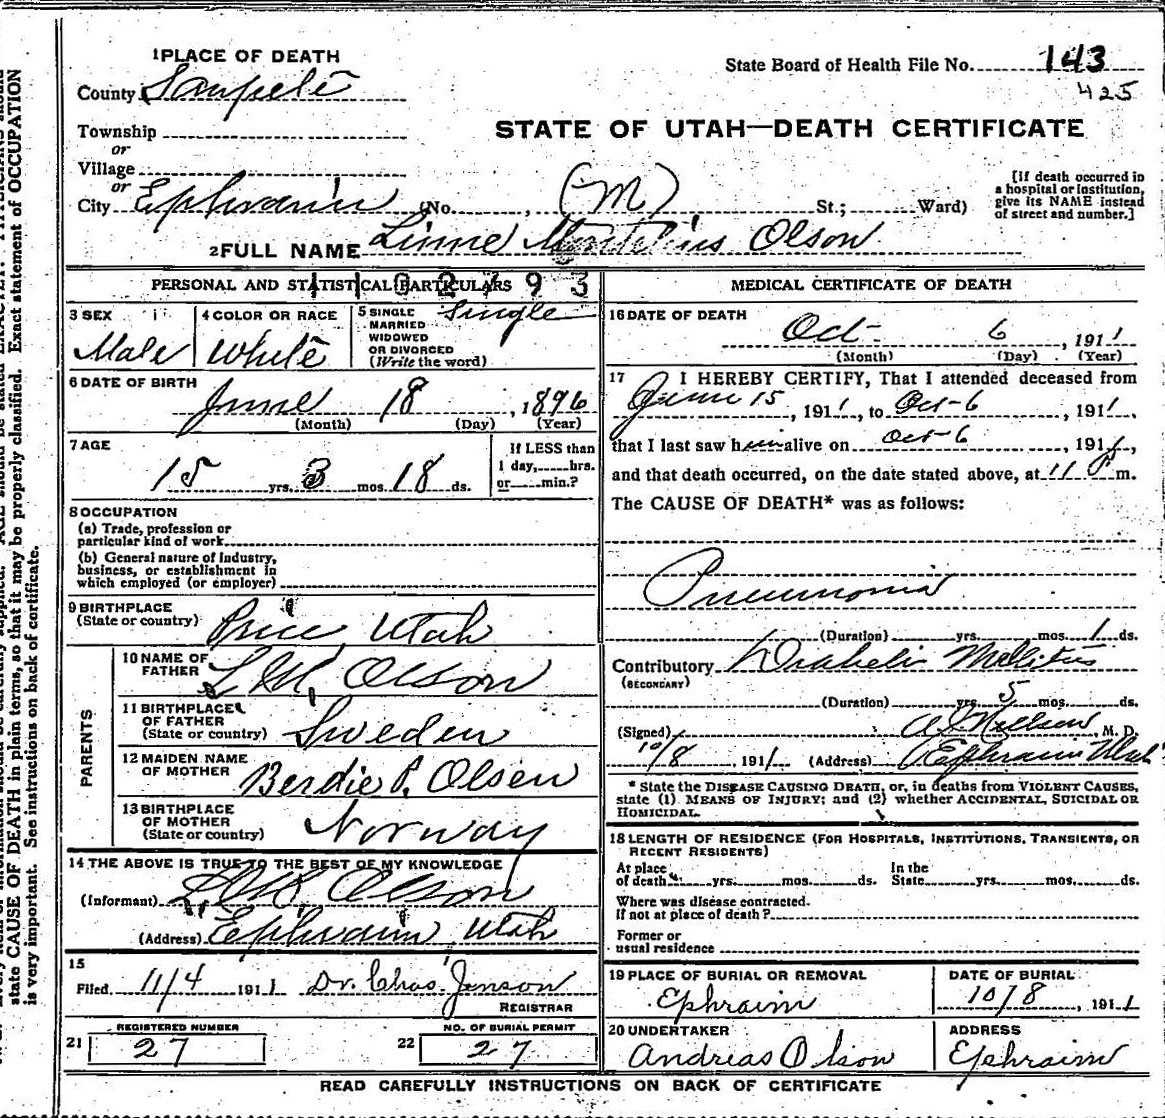 1 PLACE OF DEATH
State Board of Health File No. 143
425
County Sanpete
Township
or
Village
or
City Ephraim (No. , (M) St.; Ward)
STATE OF UTAH—DEATH CERTIFICATE
[If death occurred in
a hospital or institution,
give its NAME instead
of street and number.]
2 FULL NAME Linne Olson
PERSONAL AND STATISTICAL PARTICULARS
3 SEX Male
4 COLOR OR RACE White
5 SINGLE
MARRIED
WIDOWED
OR DIVORCED
(Write the word) Single
6 DATE OF BIRTH
June 18, 1896
(Month) (Day) (Year)
7 AGE
15 yrs. 3 mos. 18 ds.
If LESS than
1 day, hrs.
or min.?
8 OCCUPATION
(a) Trade, profession or
particular kind of work
(b) General nature of Industry,
business, or establishment in
which employed (or employer)
9 BIRTHPLACE
(State or country) Price, Utah
PARENTS
10 NAME OF
FATHER L. M. Olson
11 BIRTHPLACE
OF FATHER
(State or country) Sweden
12 MAIDEN NAME
OF MOTHER Berdie P. Olsen
13 BIRTHPLACE
OF MOTHER
(State or country) Norway
14 THE ABOVE IS TRUE TO THE BEST OF MY KNOWLEDGE
(Informant) L. M. Olson
(Address) Ephraim, Utah
15
Filed 11/4 1911 Dr. Chas. Jenson
REGISTRAR
REGISTERED NUMBER
21 27
NO. OF BURIAL PERMIT
22 27
MEDICAL CERTIFICATE OF DEATH
16 DATE OF DEATH
Oct- 6, 1911
(Month) (Day) (Year)
17 I HEREBY CERTIFY, That I attended deceased from
June 15, 1911, to Oct-6, 1911,
that I last saw him alive on Oct-6, 191
and that death occurred, on the date stated above, at 11 P m.
The CAUSE OF DEATH* was as follows:
Pneumonia
(Duration) yrs. mos. 1 ds.
Contributory Diabetis Mellitus
(SECONDARY)
(Duration) yrs. 5 mos. ds.
(Signed) M. D.
10/8, 1911 (Address) Ephraim Utah
* State the DISEASE CAUSING DEATH, or, in deaths from VIOLENT CAUSES,
state (1) MEANS OF INJURY; and (2) whether ACCIDENTAL, SUICIDAL OR
HOMICIDAL.
18 LENGTH OF RESIDENCE (FOR HOSPITALS, INSTITUTIONS, TRANSIENTS, OR
RECENT RESIDENTS)
At place
of death yrs. mos. ds.
In the
State yrs. mos. ds.
Where was disease contracted.
If not at place of death?
Former or
usual residence
19 PLACE OF BURIAL OR REMOVAL
Ephraim
DATE OF BURIAL
10/8, 1911
20 UNDERTAKER
Andreas Olson
ADDRESS
Ephraim
READ CAREFULLY INSTRUCTIONS ON BACK OF CERTIFICATE
state CAUSE OF DEATH in plain terms, so that it may be properly classified. Exact statement of OCCUPATION
is very important. See instructions on back of certificate.